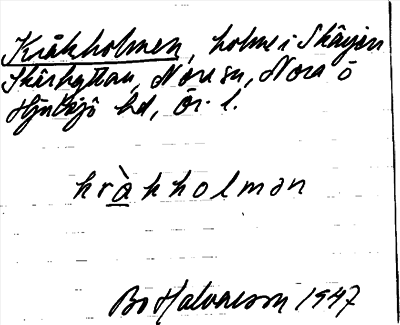 Kråkholmen, holme i Skåyen
Skärhyttan, Nora sn, Nora o
Hjulsjö hd, Ör. l.
kràkholmən
Bo Halvarson 1947